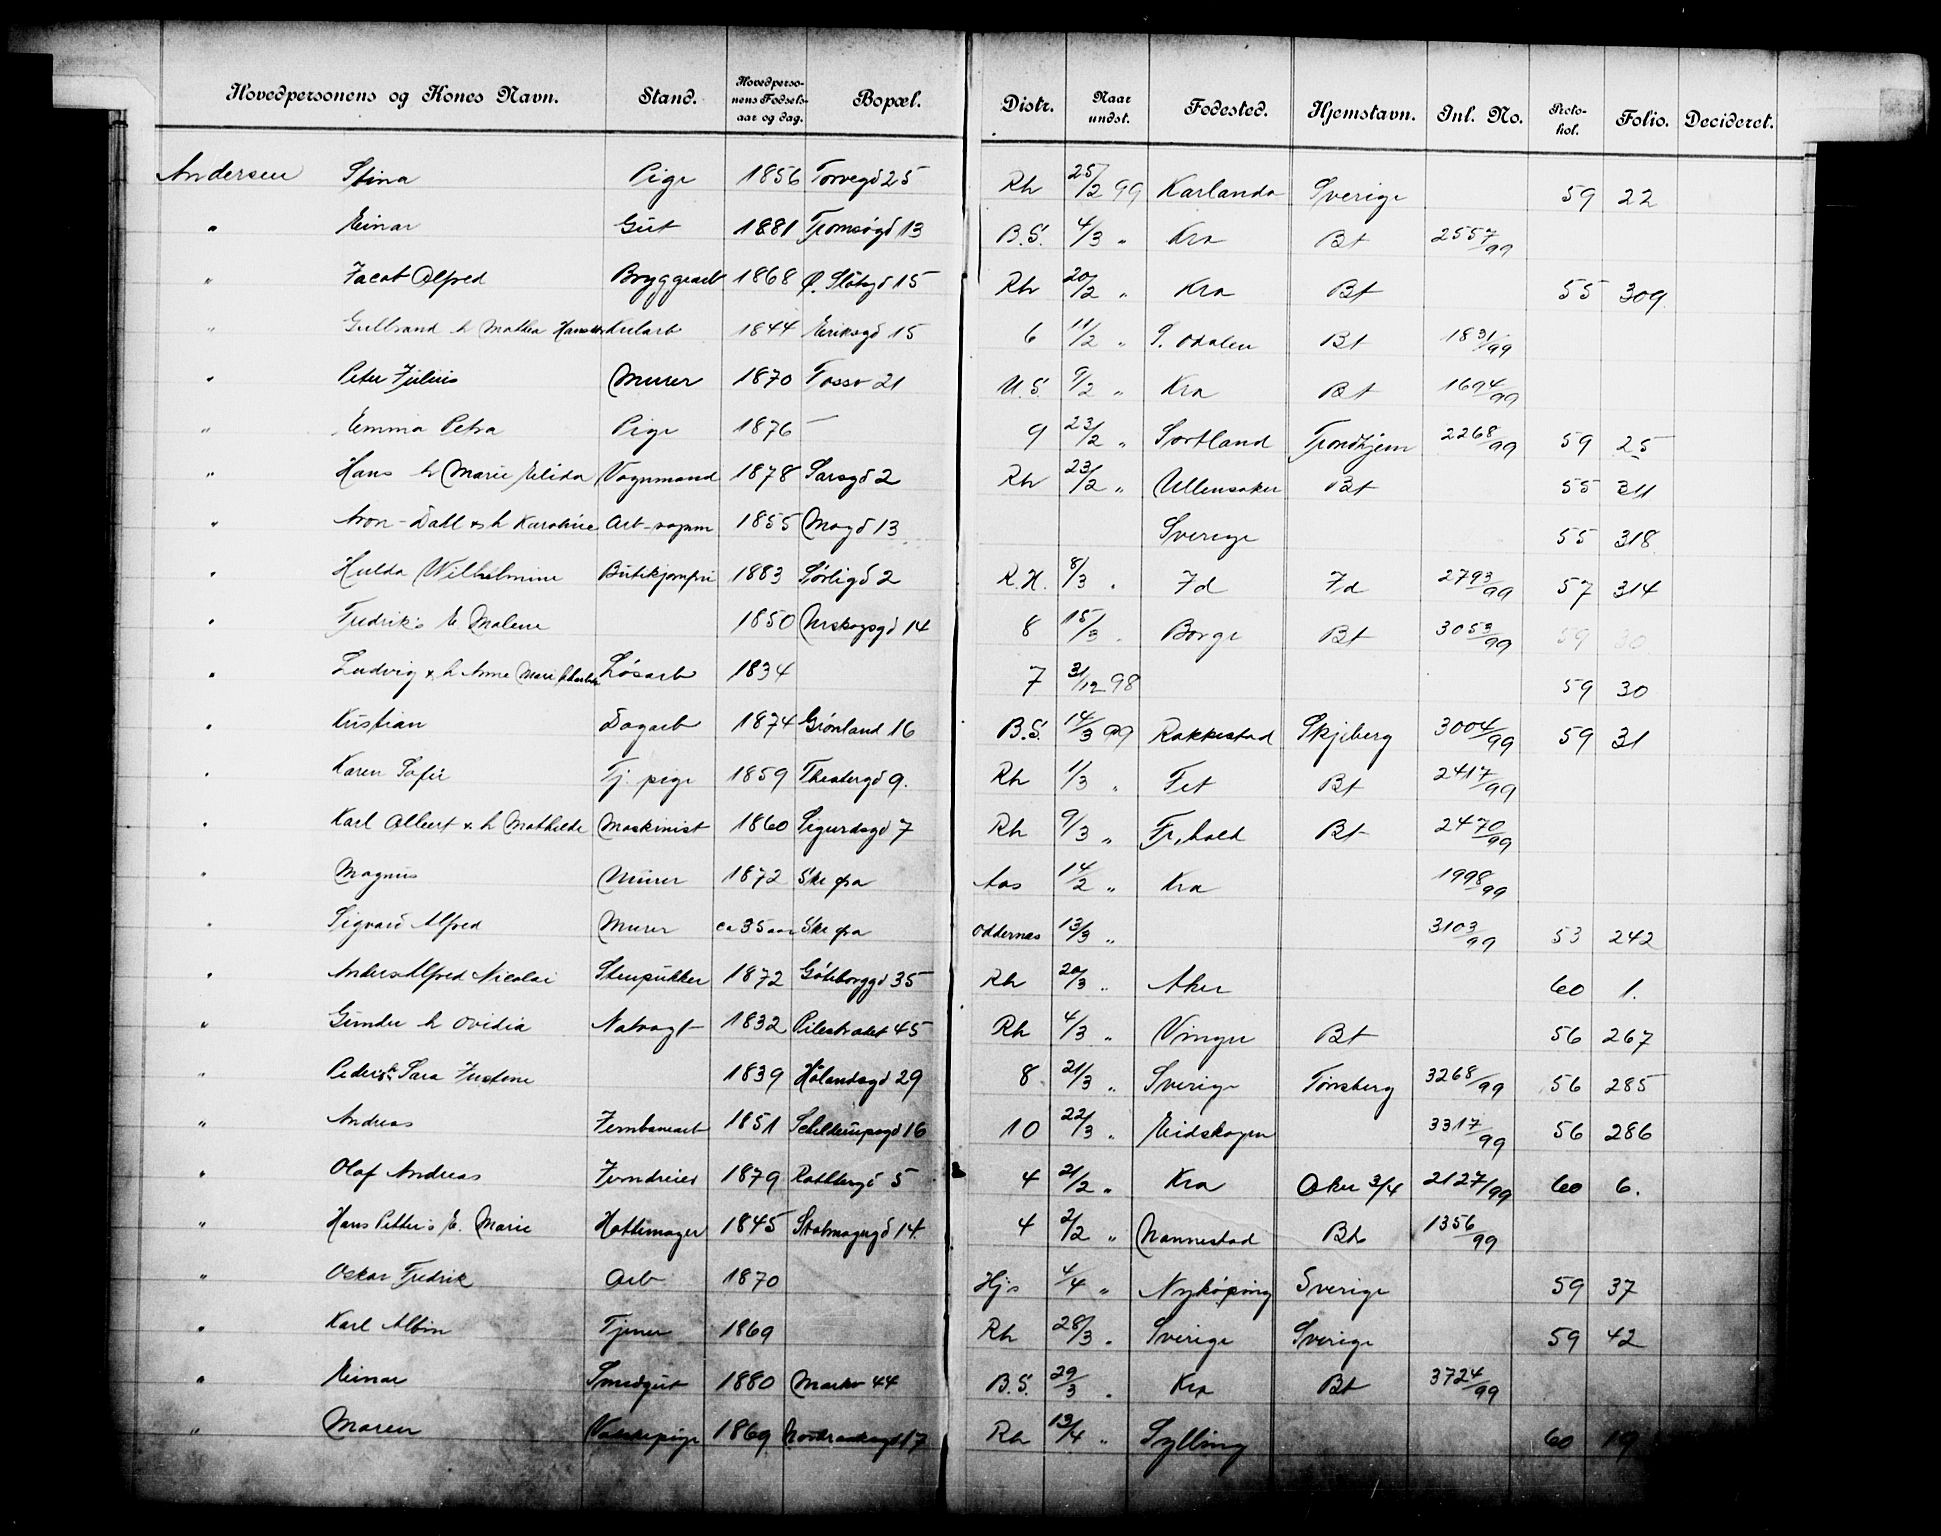 Hovedpersonens og Kones Navn. Stand. Hovedpersonens Fødselsaar og dag. Bopæl. Distr. Naar undst. Fødested. Hjemstavn. Inl. No. Protokol. Folio. Decideret.
Andersen Stina Pige 1856 Torvegd 25 Rh 25/2 99 Karlanda Sverige 59 22
" Einar Gut 1881 Tromsøgd 13 B.S. 4/3 " Kra Bt 2557/99
" Jacob Alfred Bryggearb 1868 Ø. Slotsgd 15 Rh 20/2 " Kra Bt 55 309.
" Gulbrand h Mathea Kularb 1844 Eriksgd 15 6 11/2 " S. Odalen Bt 1831/99
" Peter Julius Murer 1870 Fossv 21 U.S. 9/2 " Kra Bt 1694/99
" Emma Petra Pige 1876 — 9 23/2 " Sortland Trondhjem 2268/99 59 25
" Hans h Marie Elida Vognmand 1878 Sarsgd 2 Rh 23/2 " Ullensaker Bt 55 311
" Aron - Dahl & h Karoline Arb-vognm 1855 Mogd 13 Sverige 55 318
" Hulda Wilhelmine Butikjomfru 1883 Sørligd 2 R.H. 8/3 " Id Id 2793/99 57 314
" Fredrik's E. Malene 1850 Urskogsgd 14 8 15/3 " Borge Bt 3053/99 59 30
" Ludvig & h Anne Marie Løsarb 1834 7 31/12 98 59 30
" Kristian Dagarb 1874 Grønland 16 B.S. 14/3 99 Rakkestad Skjeberg 3004/99 59 31
" Karen Sofie Tj. pige 1859 Theatergd 9. Rh 1/3 " Fet Bt 2417/99
" Karl Albert & h Mathilde Maskinist 1860 Sigurdsgd 7 Rh 9/3 " Fr.hald Bt 2470/99
" Magnus Murer 1872 Ske fra Aas 14/2 " Kra 1998/99
" Sigvard Alfred Murer ca 35 aar Ske fra Oddernes 13/3 " 3103/99 53 242
" Anders Alfred Nicolai Stenpukker 1872 Gøteborggd 35 Rh 20/3 " Aker 60 1.
" Gunder h Ovidia Natvagt 1832 Pilestrædet 45 Rh 4/3 " Vinger Bt 56 267
" Peders Sara Justine 1839 Hølandsgd 29 8 21/3 " Sverige Tønsberg 3268/99 56 285
" Andreas Jernbanearb 1851 Schilderupsgd 16 10 22/3 " Eidskogen 3317/99 56 286
" Olaf Andreas Jerndreier 1879 Rathkesgd 5 4 21/2 " Kra Aker 3/4 2127/99 60 6.
" Hans Petter's E. Marie Hattemager 1845 Stolmagergd 14. 4 2/2 " Nannestad Bt 1356/99
" Oskar Fredrik Arb 1870 Hjs 4/4 " Nykøping Sverige 59 37
" Karl Albin Tjener 1869 Rh 28/3 " Sverige Sverige 59 42
" Einar Smedgut 1880 Markv 44 B.S. 29/3 " Kra Bt 3724/99
" Maren Vaskepige 1869 Nordraaksgd 17 Rh 13/4 " Sylling 60 19